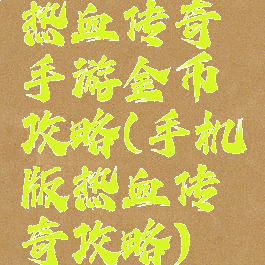 热血传奇
手游金币
攻略(手机
版热血传
奇攻略)